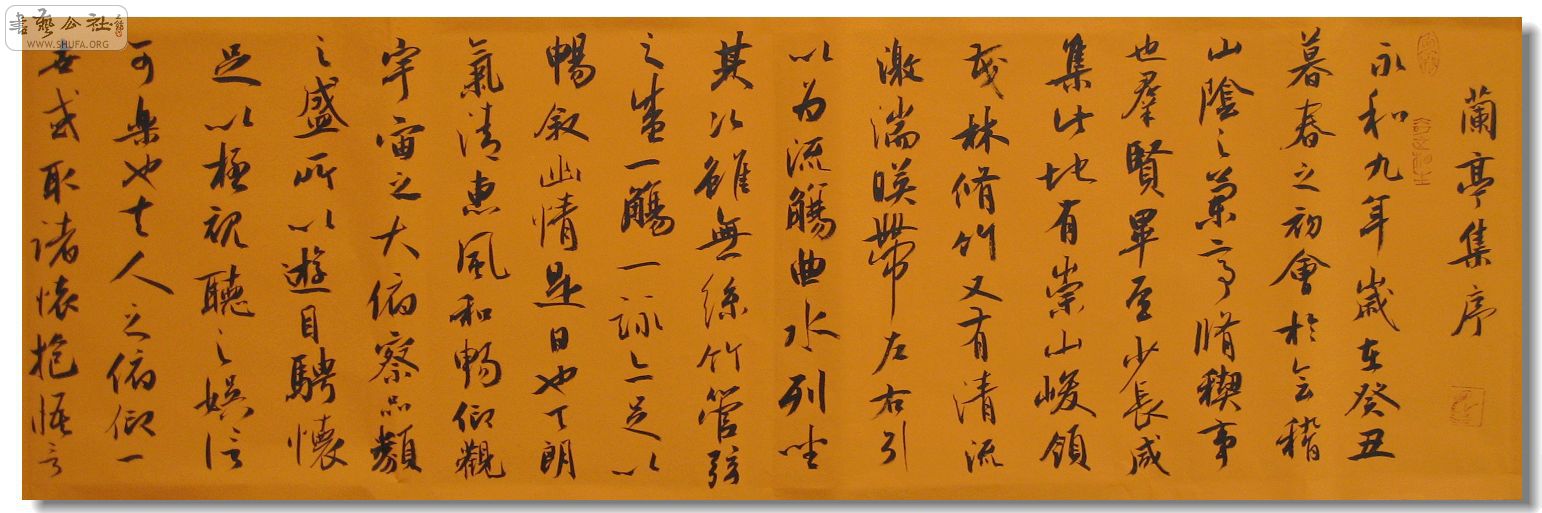 蘭亭集序
永和九年歲在癸丑
暮春之初會於會稽
山陰之蘭亭脩稧事
也羣賢畢至少長咸
集此地有崇山峻領
茂林脩竹又有清流
激湍暎帶左右引
以為流觴曲水列坐
其次雖無絲竹管弦
之盛一觴一詠亦足以
暢叙幽情是日也天朗
氣清惠風和暢仰觀
宇宙之大俯察品類
之盛所以遊目騁懷
足以極視聽之娛信
可樂也夫人之俯仰一
世或取諸懷抱悟言
書藝公社
WWW.SHUFA.ORG